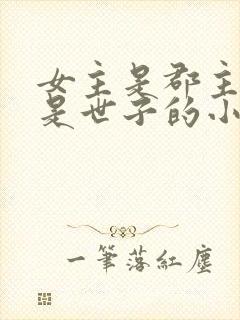 女主是郡主
是世子的小
一筆落紅塵